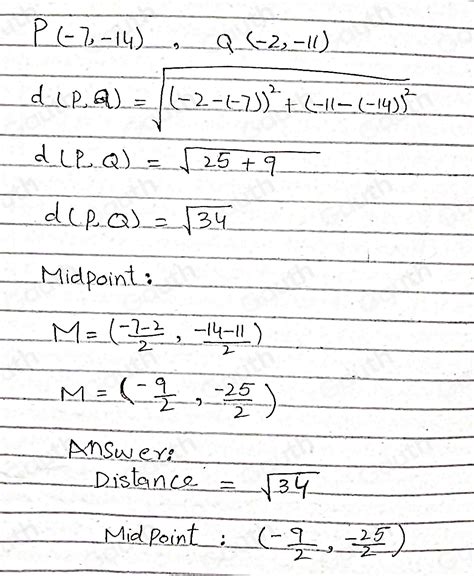 P (-7,-14) , Q (-2,-11)
d (P,Q) = √((-2-(-7))² + (-11-(-14))²)
d (P,Q) = √(25 + 9)
d (P,Q) = √34
Midpoint:
M = (-7-2/2 , -14-11/2)
M = (-9/2 , -25/2)
Answer:
Distance = √34
Midpoint : (-9/2 , -25/2)